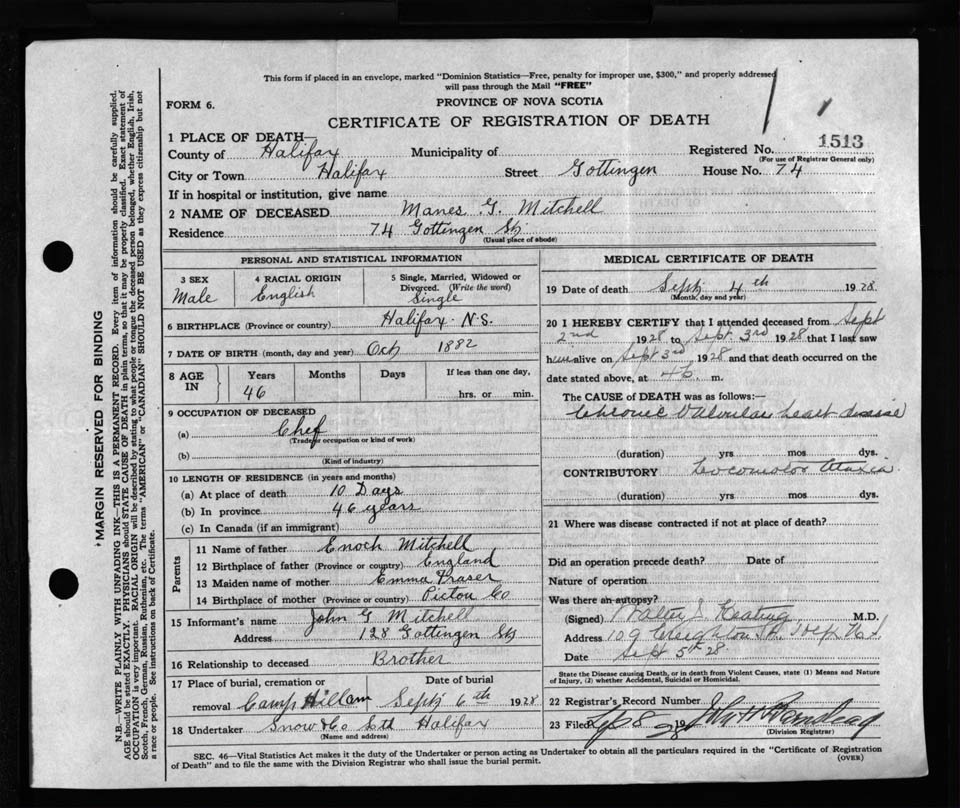 This form if placed in an envelope, marked "Dominion Statistics—Free, penalty for improper use, $300," and properly addressed
will pass through the Mail "FREE"
FORM 6.
PROVINCE OF NOVA SCOTIA
CERTIFICATE OF REGISTRATION OF DEATH
1 PLACE OF DEATH—
County of Halifax Municipality of Registered No. 1513
(For use of Registrar General only)
City or Town Halifax Street Gottingen House No. 74
If in hospital or institution, give name
2 NAME OF DECEASED Manes G. Mitchell
Residence 74 Gottingen St
(Usual place of abode)
PERSONAL AND STATISTICAL INFORMATION
3 SEX Male
4 RACIAL ORIGIN English
5 Single, Married, Widowed or
Divorced. (Write the word)
Single
6 BIRTHPLACE (Province or country) Halifax N.S.
7 DATE OF BIRTH (month, day and year) Oct 1882
8 AGE IN
Years Months Days If less than one day,
46 hrs. or min.
9 OCCUPATION OF DECEASED
(a) Chef
(Trade, occupation or kind of work)
(b)
(Kind of industry)
10 LENGTH OF RESIDENCE (in years and months)
(a) At place of death 10 Days
(b) In province 46 years
(c) In Canada (if an immigrant)
Parents
11 Name of father Enoch Mitchell
12 Birthplace of father (Province or country) England
13 Maiden name of mother Emma Fraser
14 Birthplace of mother (Province or country) Pictou Co
15 Informant's name John G Mitchell
Address 128 Gottingen St
16 Relationship to deceased Brother
17 Place of burial, cremation or Date of burial
removal Camp Hill Sept 6th 1928
18 Undertaker Snow & Co Ltd Halifax
(Name and address)
MEDICAL CERTIFICATE OF DEATH
19 Date of death Sept 4th 1928.
(Month, day and year)
20 I HEREBY CERTIFY that I attended deceased from Sept
2nd 1928 to Sept. 3rd 1928 that I last saw
him alive on Sept 3rd 1928 and that death occurred on the
date stated above, at m.
The CAUSE of DEATH was as follows:—
Chronic Valvular heart disease
(duration) yrs mos dys.
CONTRIBUTORY Locomotor Ataxia
(duration) yrs mos dys.
21 Where was disease contracted if not at place of death?
Did an operation precede death? Date of
Nature of operation
Was there an autopsy?
(Signed) Walter J. Keating M.D.
Address 109 Creighton St.
Date Sept 5th 28
State the Disease causing Death, or in death from Violent Causes, state (1) Means and Nature
of Injury, (2) whether Accidental, Suicidal or Homicidal.
22 Registrar's Record Number
23 Filed 8 1928
(Division Registrar)
SEC. 46—Vital Statistics Act makes it the duty of the Undertaker or person acting as Undertaker to obtain all the particulars required in the "Certificate of Registration
of Death" and to file the same with the Division Registrar who shall issue the burial permit.
(OVER)
MARGIN RESERVED FOR BINDING
N.B.—WRITE PLAINLY WITH UNFADING INK—THIS IS A PERMANENT RECORD. Every item of information should be carefully supplied.
AGE should be stated EXACTLY. PHYSICIANS should STATE CAUSE OF DEATH in plain terms, so that it may be properly classified. Exact statement of
OCCUPATION is very important. RACIAL ORIGIN will be described by stating to what people or tongue the deceased person belonged, whether English, Irish,
Scotch, French, German, Russian, Ruthenian, etc. The terms "AMERICAN" or "CANADIAN" SHOULD NOT BE USED as they express citizenship but not
a race or people. See instructions on back of Certificate.